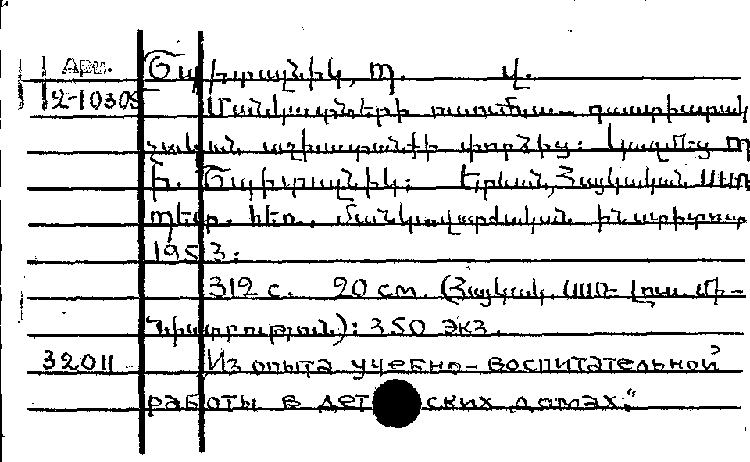 Арм.
2-10305
Մանկատների ուսումնա-դաստիարակ
չական աշխատանքի փորձից: Կազմեց
Երևան, Հայկական ՍՍՌ
պետ. հեռ. մանկավարժական ինստիտուտ
1953:
312 с. 20 см. (Հայկակ. ՍՍՌ Լուս. մի-
նիստրություն): 350 экз.
32011 Из опыта учебно-воспитательной
работы в детских домах."